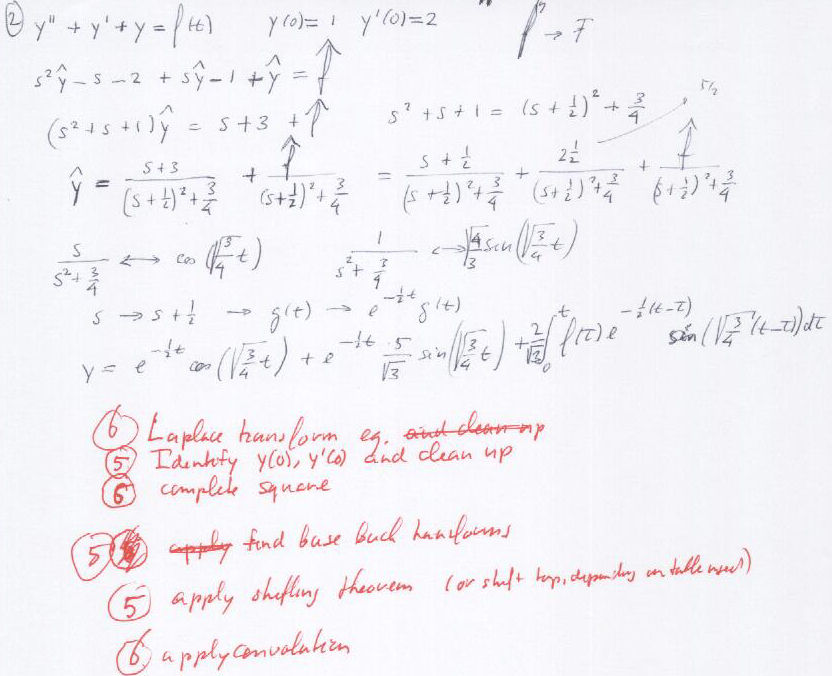 ② y'' + y' + y = f(t)    y(0) = 1    y'(0) = 2    " f̂ → F
s²ŷ - s - 2 + sŷ - 1 + ŷ = f̂
(s² + s + 1)ŷ = s + 3 + f̂    s² + s + 1 = (s + 1/2)² + 3/4    5/2
ŷ = (s+3)/((s+1/2)² + 3/4) + f̂/((s+1/2)² + 3/4) = (s + 1/2)/((s + 1/2)² + 3/4) + (2 1/2)/((s+1/2)² + 3/4) + f̂/((s+1/2)² + 3/4)
s/(s² + 3/4) ↔ cos(√(3/4) t)    1/(s² + 3/4) ↔ √(4/3) sin(√(3/4) t)
s → s + 1/2 → g(t) → e^(-1/2 t) g(t)
y = e^(-1/2 t) cos(√(3/4) t) + e^(-1/2 t) · 5/√3 sin(√(3/4) t) + 2/√3 ∫₀^t f(τ) e^(-1/2 (t-τ)) sin(√(3/4) (t-τ)) dτ
⑥ Laplace transform eq. and clean up
⑤ Identify y(0), y'(0) and clean up
⑥ complete square
⑤ apply find base back transforms
⑤ apply shifting theorem (or shift top, depending on table used)
⑥ apply convolution